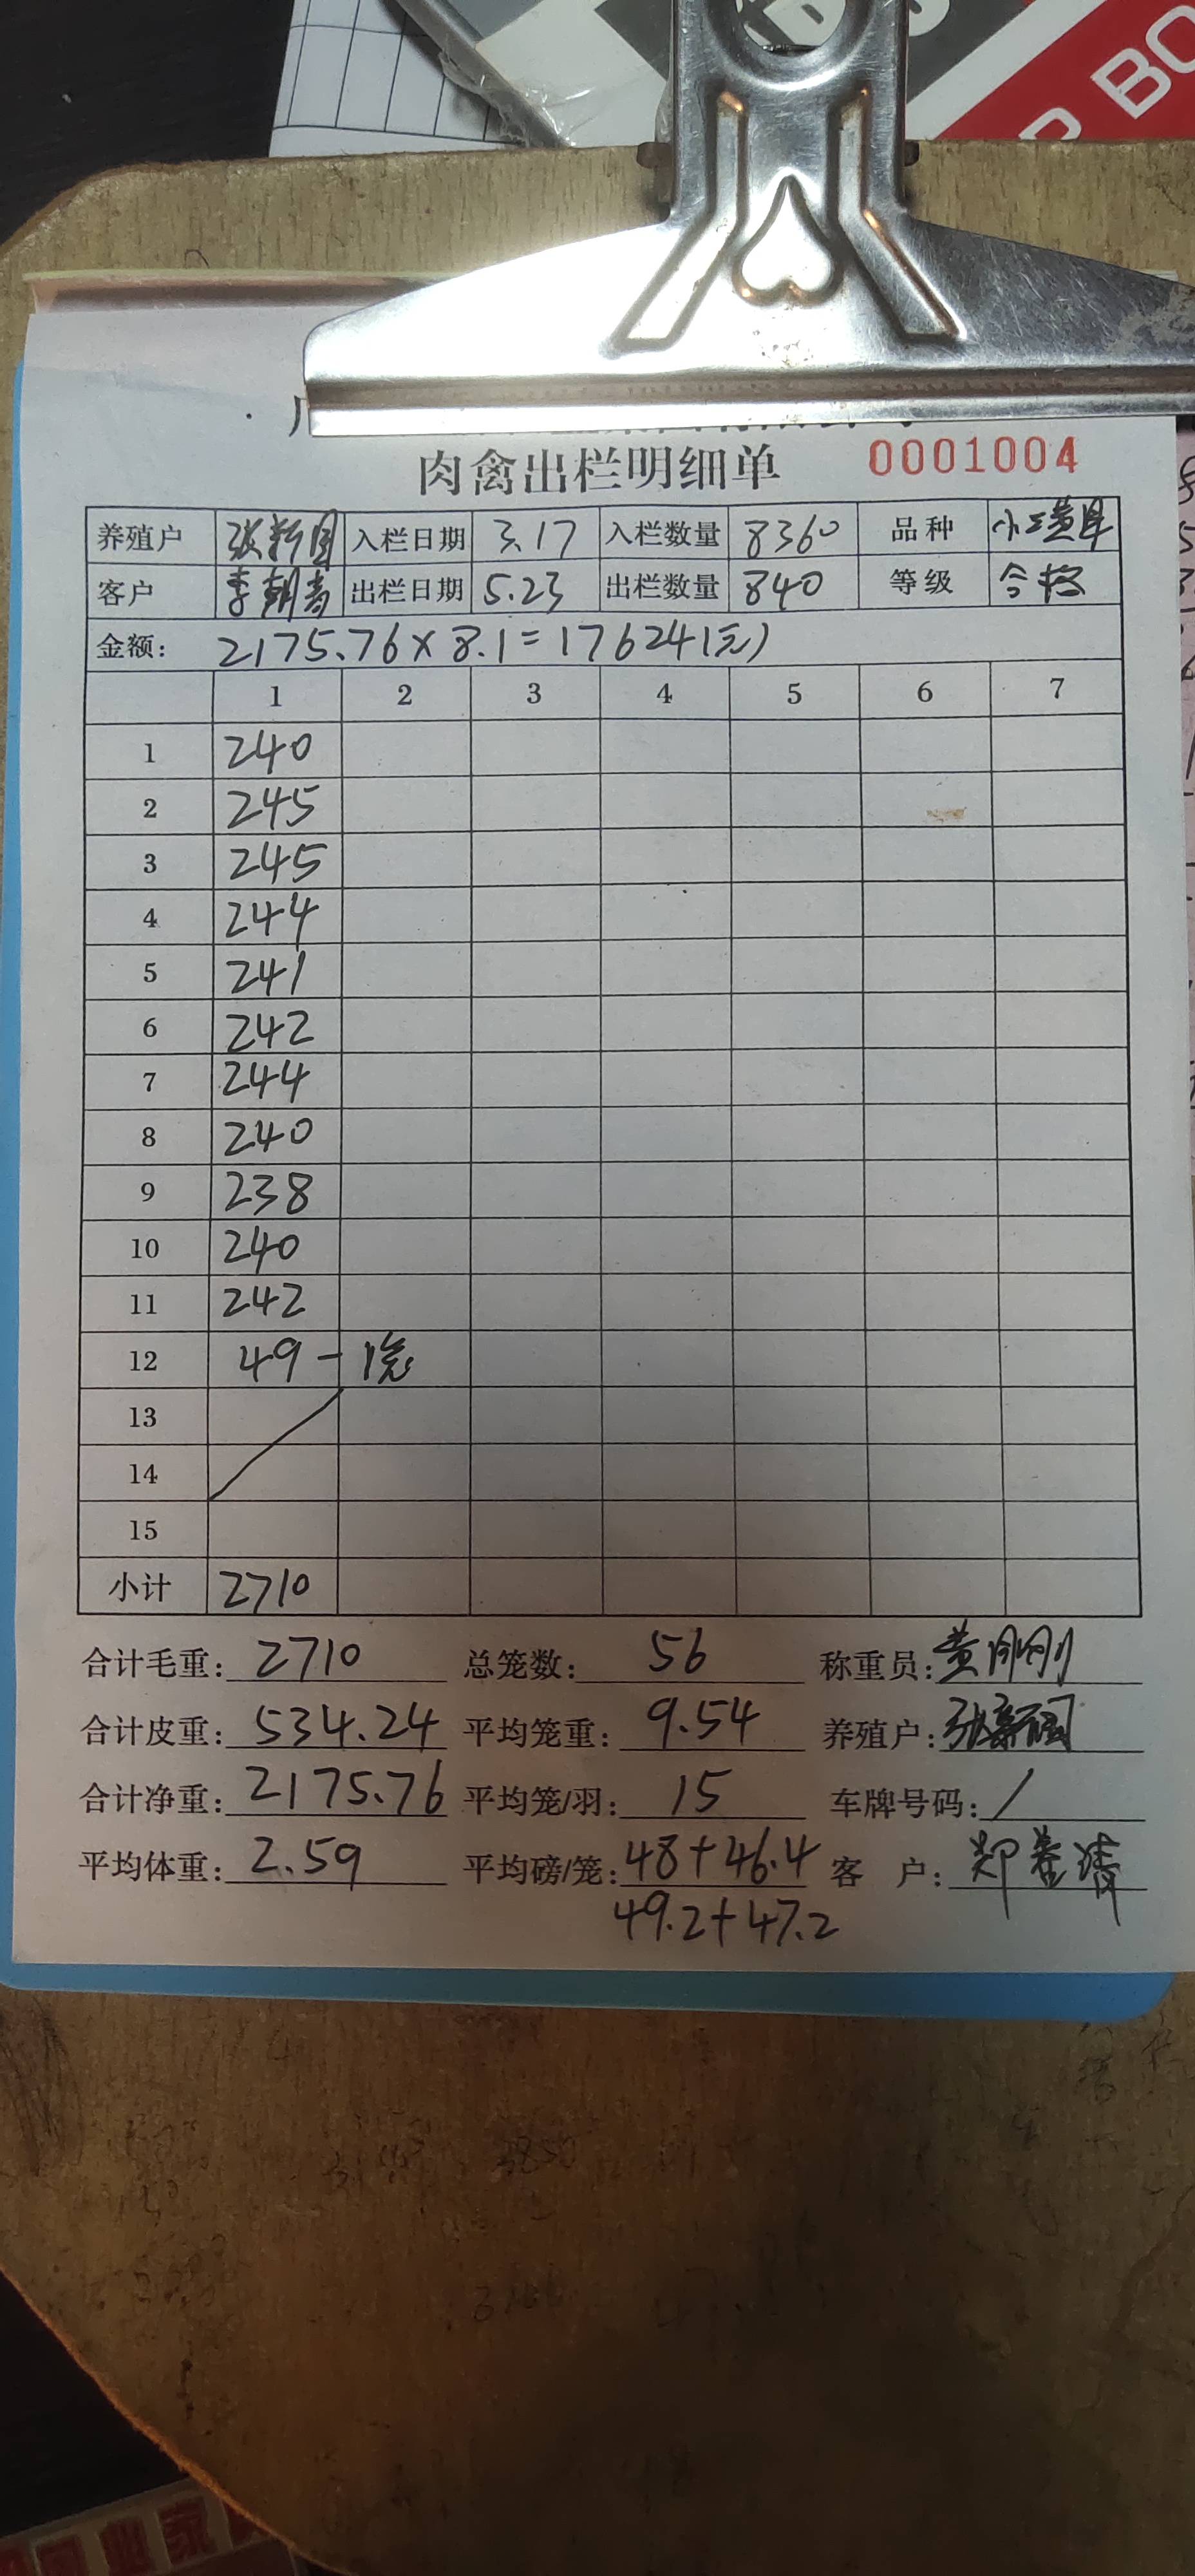 P BO
肉禽出栏明细单 0001004
养殖户 张新国 入栏日期 3.17 入栏数量 8360 品种
客户 李朝 出栏日期 5.23 出栏数量 840 等级 合格
金额: 2175.76×8.1=17624(元)
1 2 3 4 5 6 7
1 240
2 245
3 245
4 244
5 241
6 242
7 244
8 240
9 238
10 240
11 242
12 49-1笼
13
14
15
小计 2710
合计毛重: 2710 总笼数: 56 称重员: 黄刚刚
合计皮重: 534.24 平均笼重: 9.54 养殖户: 张新国
合计净重: 2175.76 平均笼/羽: 15 车牌号码: /
平均体重: 2.59 平均磅/笼: 48+46.4 客 户: 郑
49.2+47.2